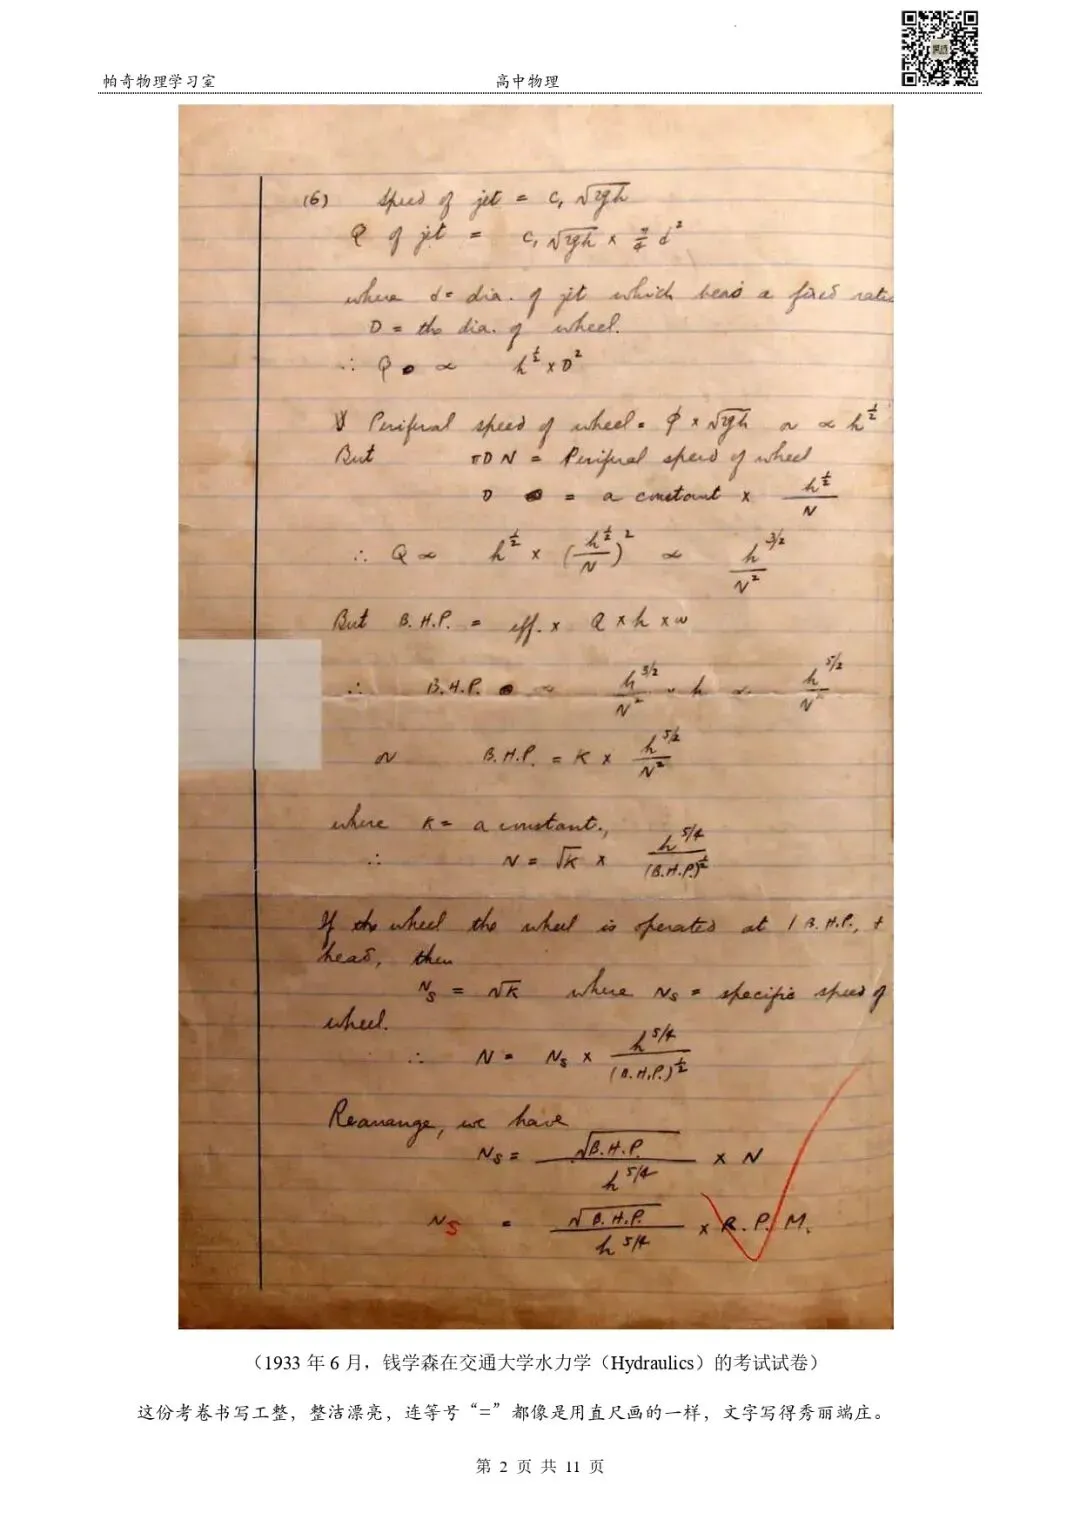 帕奇物理学习室 高中物理
(6) Speed of jet = c, √2gh
Q of jet = c, √2gh × π/4 d²
where d = dia. of jet which bears a fixed ratio
D = the dia. of wheel.
∴ Q ∝ h^½ × D²
Periferal speed of wheel = φ × √2gh or ∝ h^½
But πDN = Periferal speed of wheel
D = a constant × h^½/N
∴ Q ∝ h^½ × (h^½/N)² ∝ h^3/2/N²
But B.H.P. = eff. × Q × h × w
∴ B.H.P. ∝ h^3/2/N² × h ∝ h^5/2/N²
or B.H.P. = K × h^5/2/N²
where K = a constant.,
∴ N = √K × h^5/4/(B.H.P.)^½
If the wheel the wheel is operated at 1 B.H.P., +
head, then
Ns = √K where Ns = specific speed of
wheel.
∴ N = Ns × h^5/4/(B.H.P.)^½
Rearrange, we have
Ns = √B.H.P./h^5/4 × N
Ns = √B.H.P./h^5/4 × R.P.M.
（1933 年 6 月，钱学森在交通大学水力学（Hydraulics）的考试试卷）
这份考卷书写工整，整洁漂亮，连等号“=”都像是用直尺画的一样，文字写得秀丽端庄。
第 2 页 共 11 页